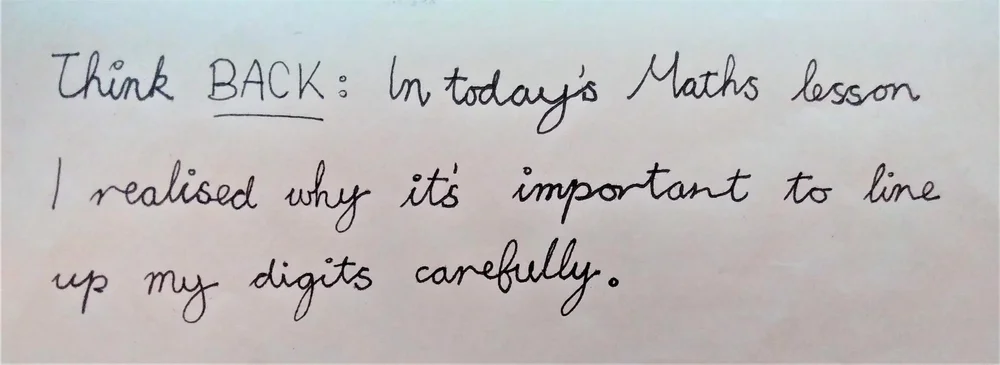 Think BACK: In today's Maths lesson
I realised why it's important to line
up my digits carefully.